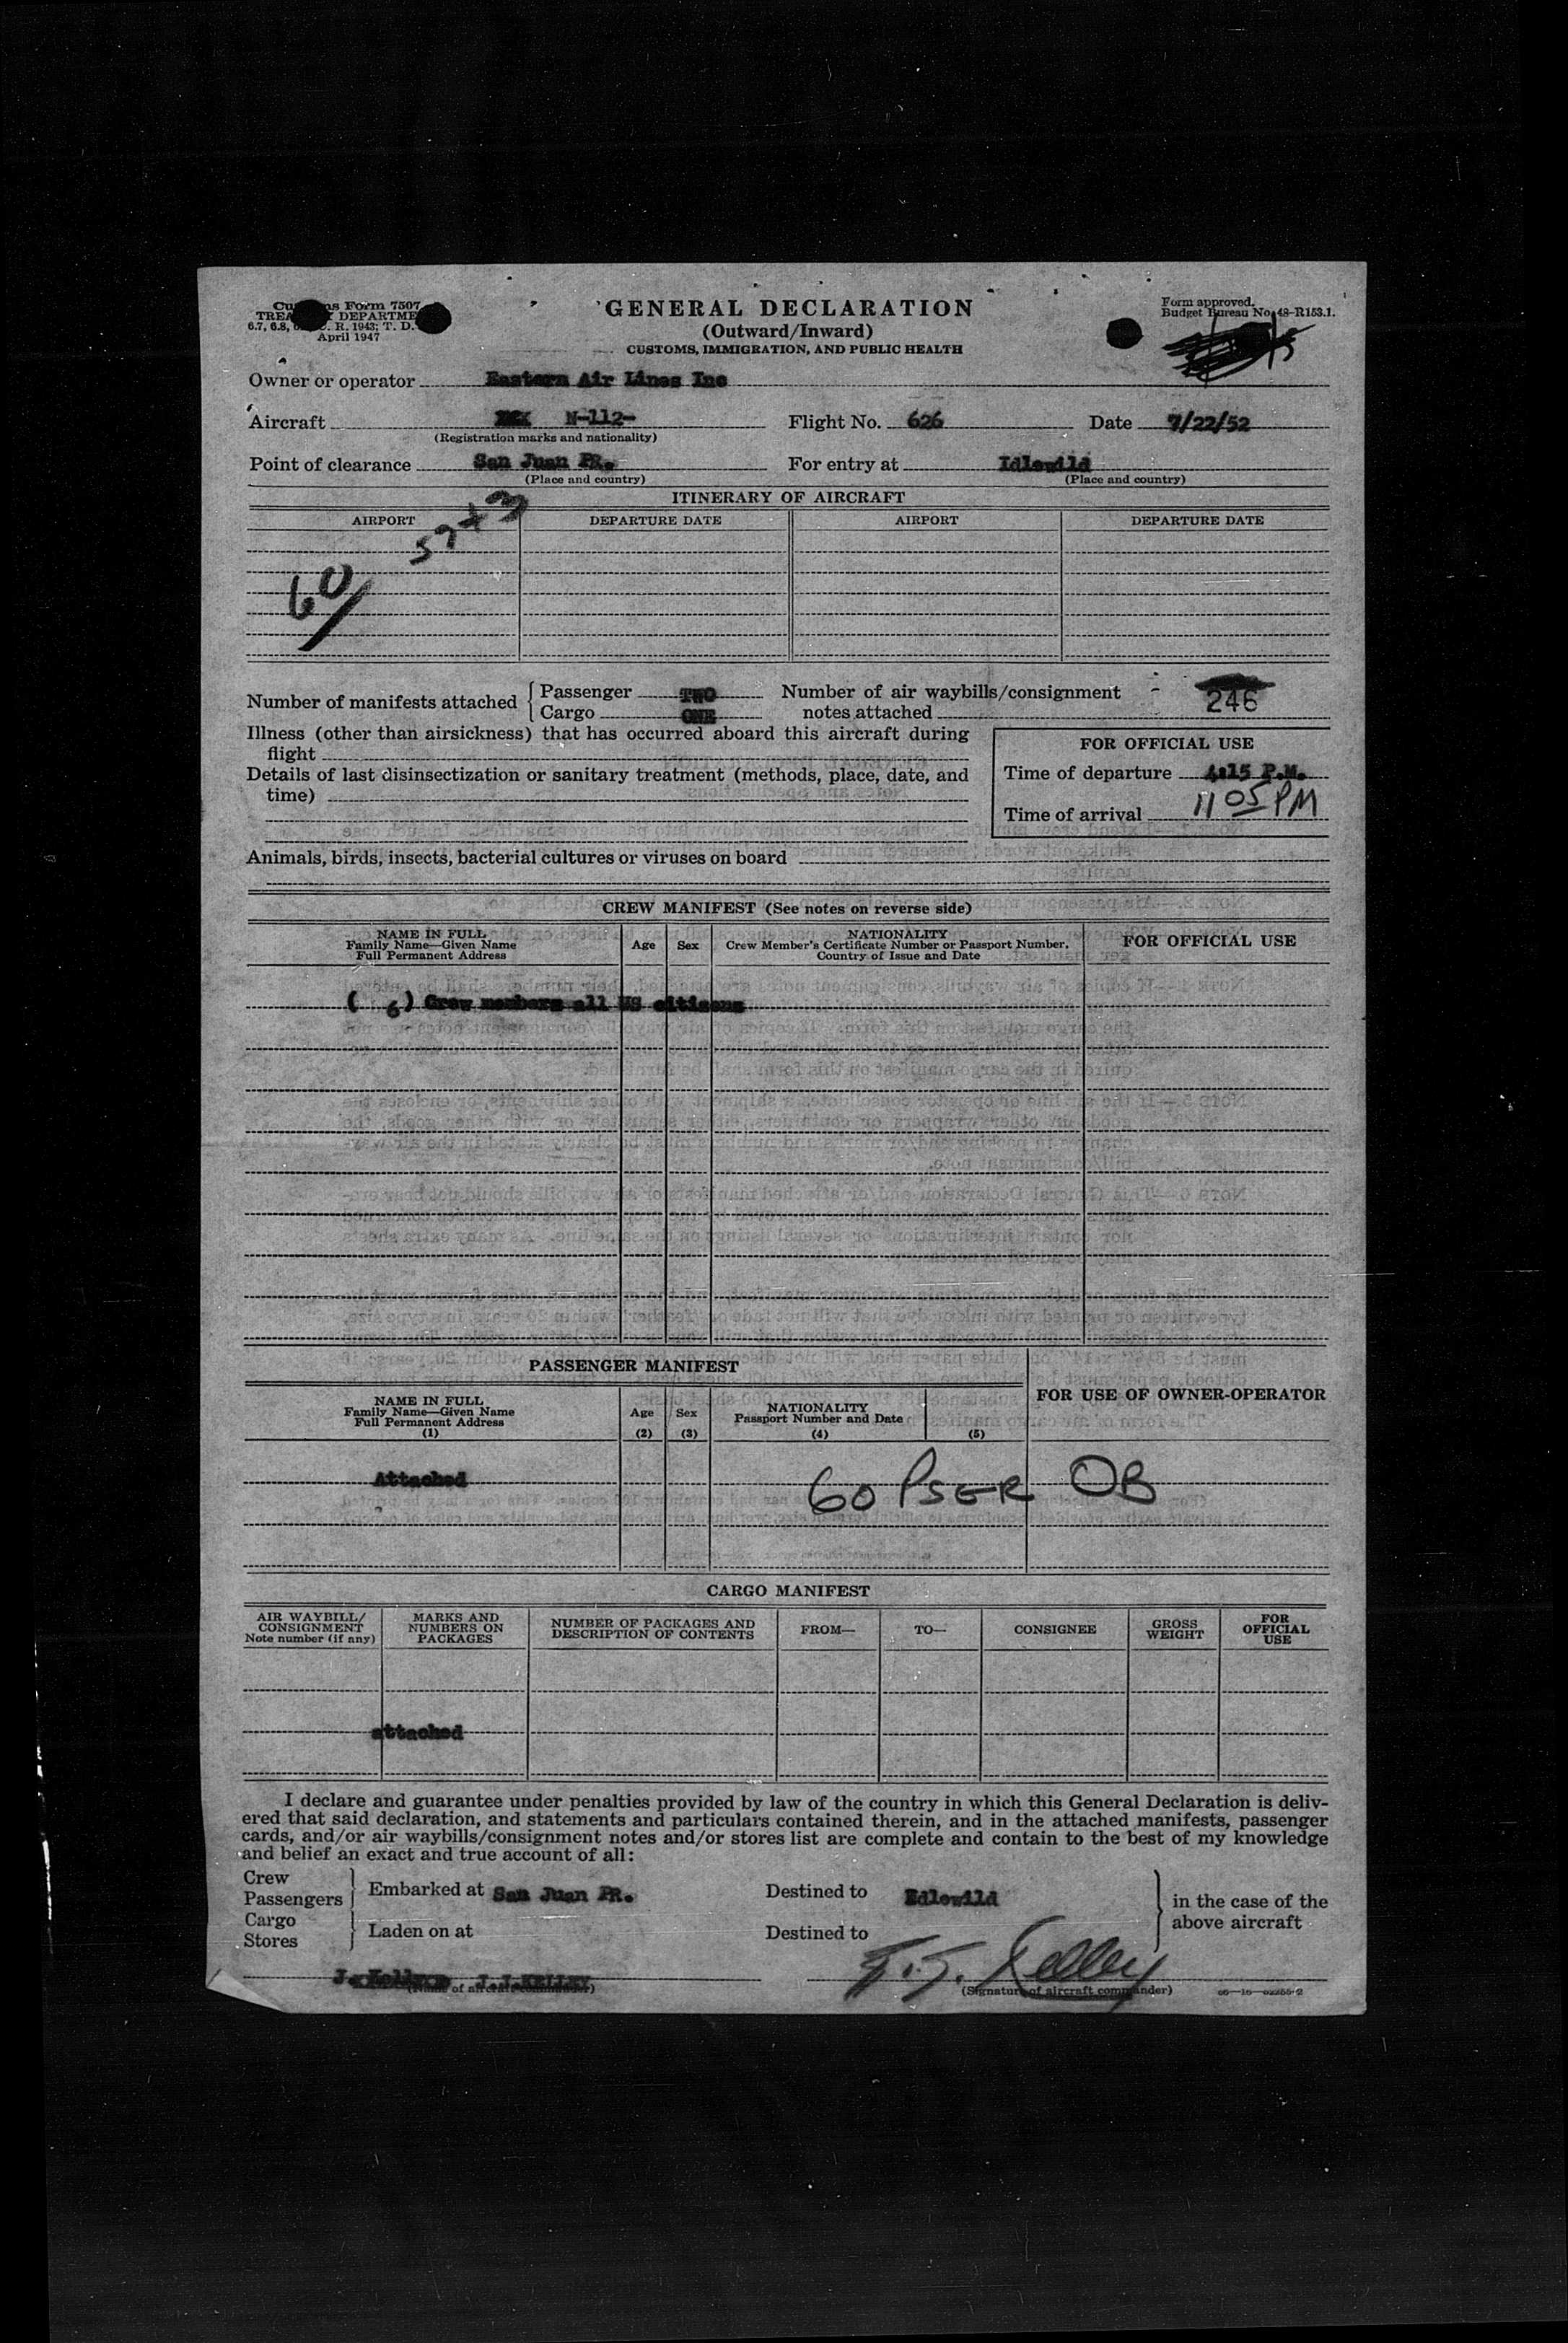 Customs Form 7507
TREASURY DEPARTMENT
6.7, 6.8, R. 1943; T. D.
April 1947
GENERAL DECLARATION
(Outward/Inward)
CUSTOMS, IMMIGRATION, AND PUBLIC HEALTH
Form approved.
Budget Bureau No. 48-R153.1.
Owner or operator Eastern Air Lines Inc
Aircraft N-112- Flight No. 626 Date 7/22/52
(Registration marks and nationality)
Point of clearance San Juan PR. For entry at Idlewild
(Place and country) (Place and country)
ITINERARY OF AIRCRAFT
AIRPORT DEPARTURE DATE AIRPORT DEPARTURE DATE
57+3
60/
Number of manifests attached Passenger TWO Number of air waybills/consignment
Cargo ONE notes attached 246
Illness (other than airsickness) that has occurred aboard this aircraft during
flight
Details of last disinsectization or sanitary treatment (methods, place, date, and
time)
FOR OFFICIAL USE
Time of departure 4:15 P.M.
Time of arrival 11 05 PM
Animals, birds, insects, bacterial cultures or viruses on board
CREW MANIFEST (See notes on reverse side)
NAME IN FULL
Family Name—Given Name
Full Permanent Address
Age Sex
NATIONALITY
Crew Member's Certificate Number or Passport Number,
Country of Issue and Date
FOR OFFICIAL USE
( 6) Crew members all US citizens
PASSENGER MANIFEST
NAME IN FULL
Family Name—Given Name
Full Permanent Address
(1)
Age
(2)
Sex
(3)
NATIONALITY
Passport Number and Date
(4) (5)
FOR USE OF OWNER-OPERATOR
Attached
60 PSGR OB
CARGO MANIFEST
AIR WAYBILL/
CONSIGNMENT
Note number (if any)
MARKS AND
NUMBERS ON
PACKAGES
NUMBER OF PACKAGES AND
DESCRIPTION OF CONTENTS
FROM—
TO—
CONSIGNEE
GROSS
WEIGHT
FOR
OFFICIAL
USE
attached
I declare and guarantee under penalties provided by law of the country in which this General Declaration is deliv-
ered that said declaration, and statements and particulars contained therein, and in the attached manifests, passenger
cards, and/or air waybills/consignment notes and/or stores list are complete and contain to the best of my knowledge
and belief an exact and true account of all:
Crew
Passengers Embarked at San Juan PR. Destined to Edlewild
Cargo
Stores Laden on at Destined to
in the case of the
above aircraft
J. J. KELLEY
(Name of aircraft commander)
J. J. Kelley
(Signature of aircraft commander)